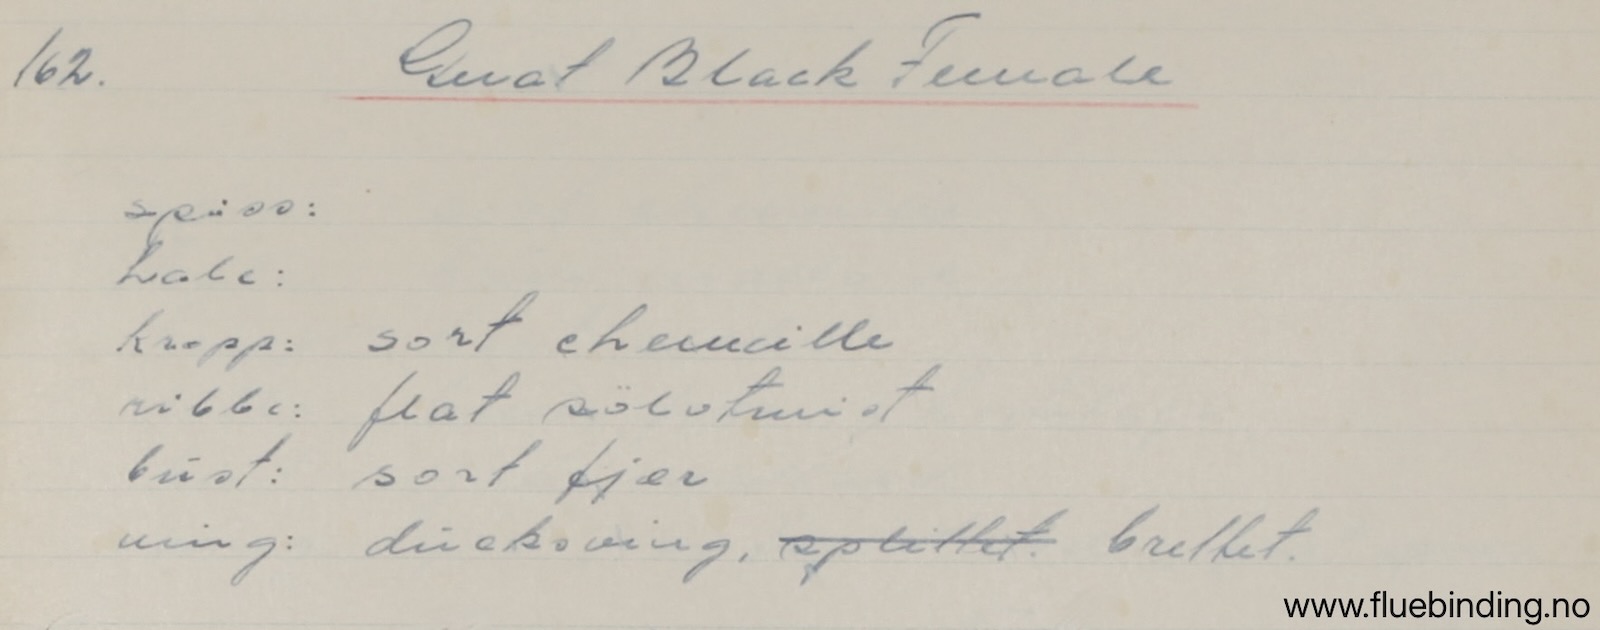 162. Gnat Black Female
spiss:
hale:
kropp: sort chenille
ribbe: flat sölvtwist
büst: sort fjær
ving: duckswing, splittet. brettet.
www.fluebinding.no